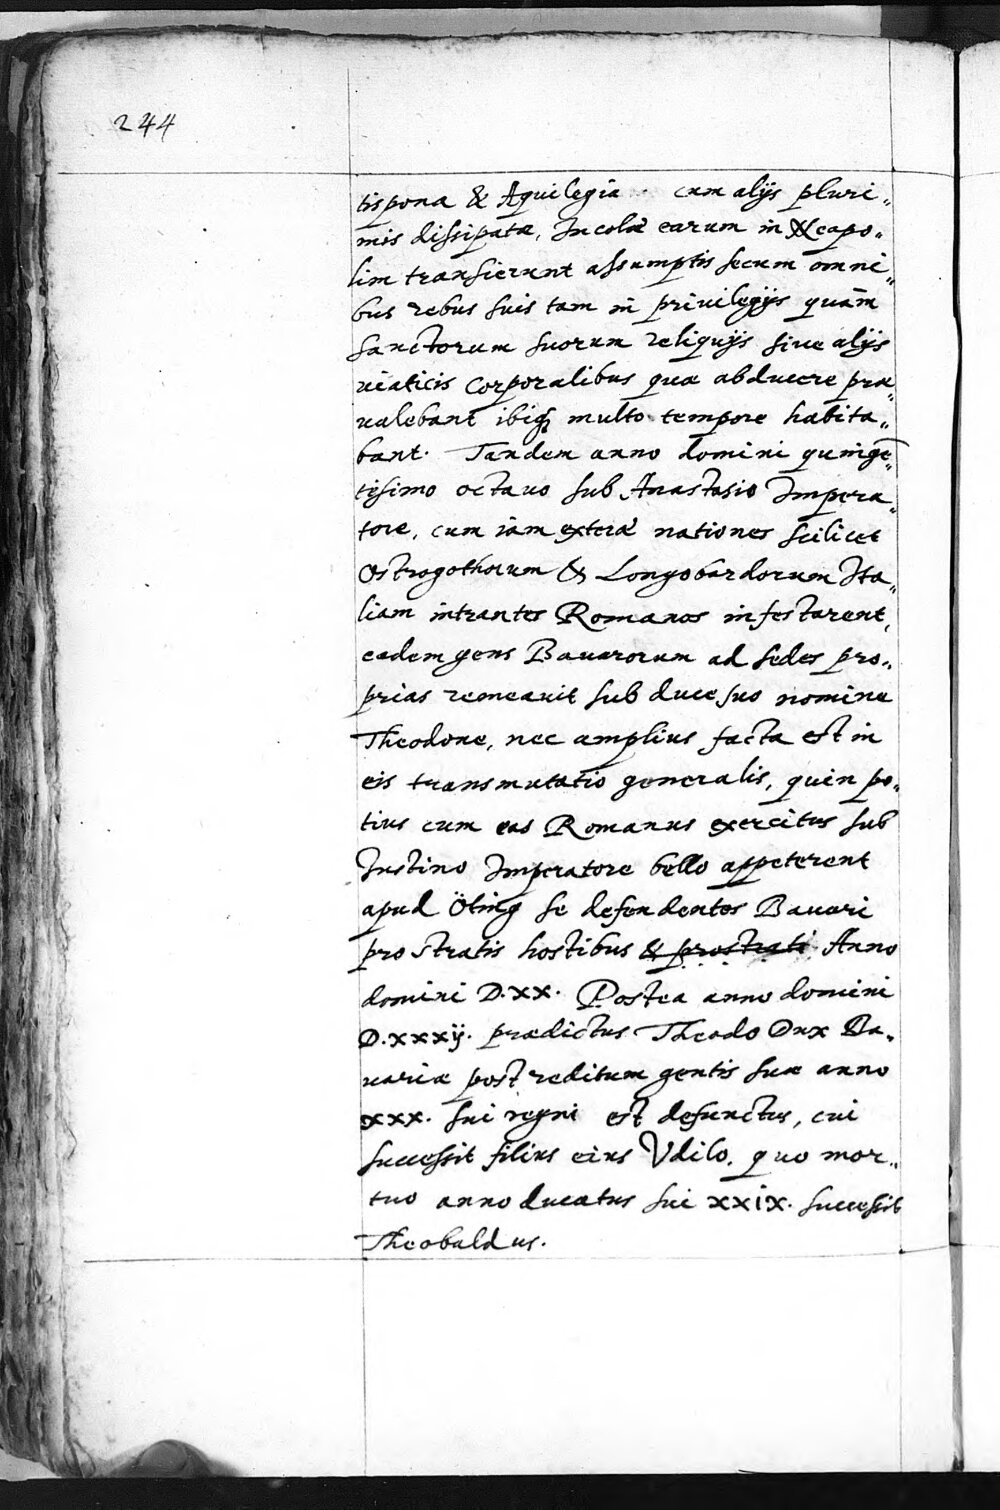 244
tispona & Aquilegia cum alijs pluri„
mis dissipatæ, Incolæ earum in Neapo„
lim transierunt assumptis secum omni„
bus rebus suis tam in priuilegijs quàm
sanctorum suorum reliquijs siue alijs
uiaticis corporalibus quæ abducere præ„
ualebant ibiq; multo tempore habita„
bant. Tandem anno domini quingē„
tisimo octauo sub Anastasio Impera„
tore, cum iam exteræ nationes scilicet
Ostrogothorum & Longobardorum Ita„
liam intrantes Romanos infestarent,
eadem gens Bauarorum ad sedes pro„
prias remeauit sub duce suo nomine
Theodone, nec amplius facta est in
eis transmutatio generalis, quin po„
tius cum eas Romanus exercitus sub
Iustino Imperatore bello appeterent
apud Öting se defendentes Bauari
prostratis hostibus & prostrati Anno
domini D.xx. Postea anno domini
D.xxxij. prædictus Theodo Dux Ba„
uariæ post reditum gentis suæ anno
xxx. sui regni est defunctus, cui
successit filius eius Vdilo. quo mor„
tuo anno ducatus sui xxix. successit
Theobaldus.